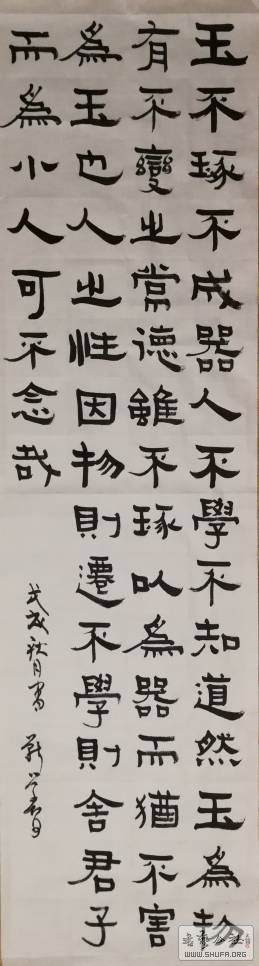 玉不琢不成器人不學不知道然玉為物
有不變之常德雖不琢以為器而猶不害
為玉也人之性因物則遷不學則舍君子
而為小人可不念哉
戌秋月書
WWW.SHUFA.ORG